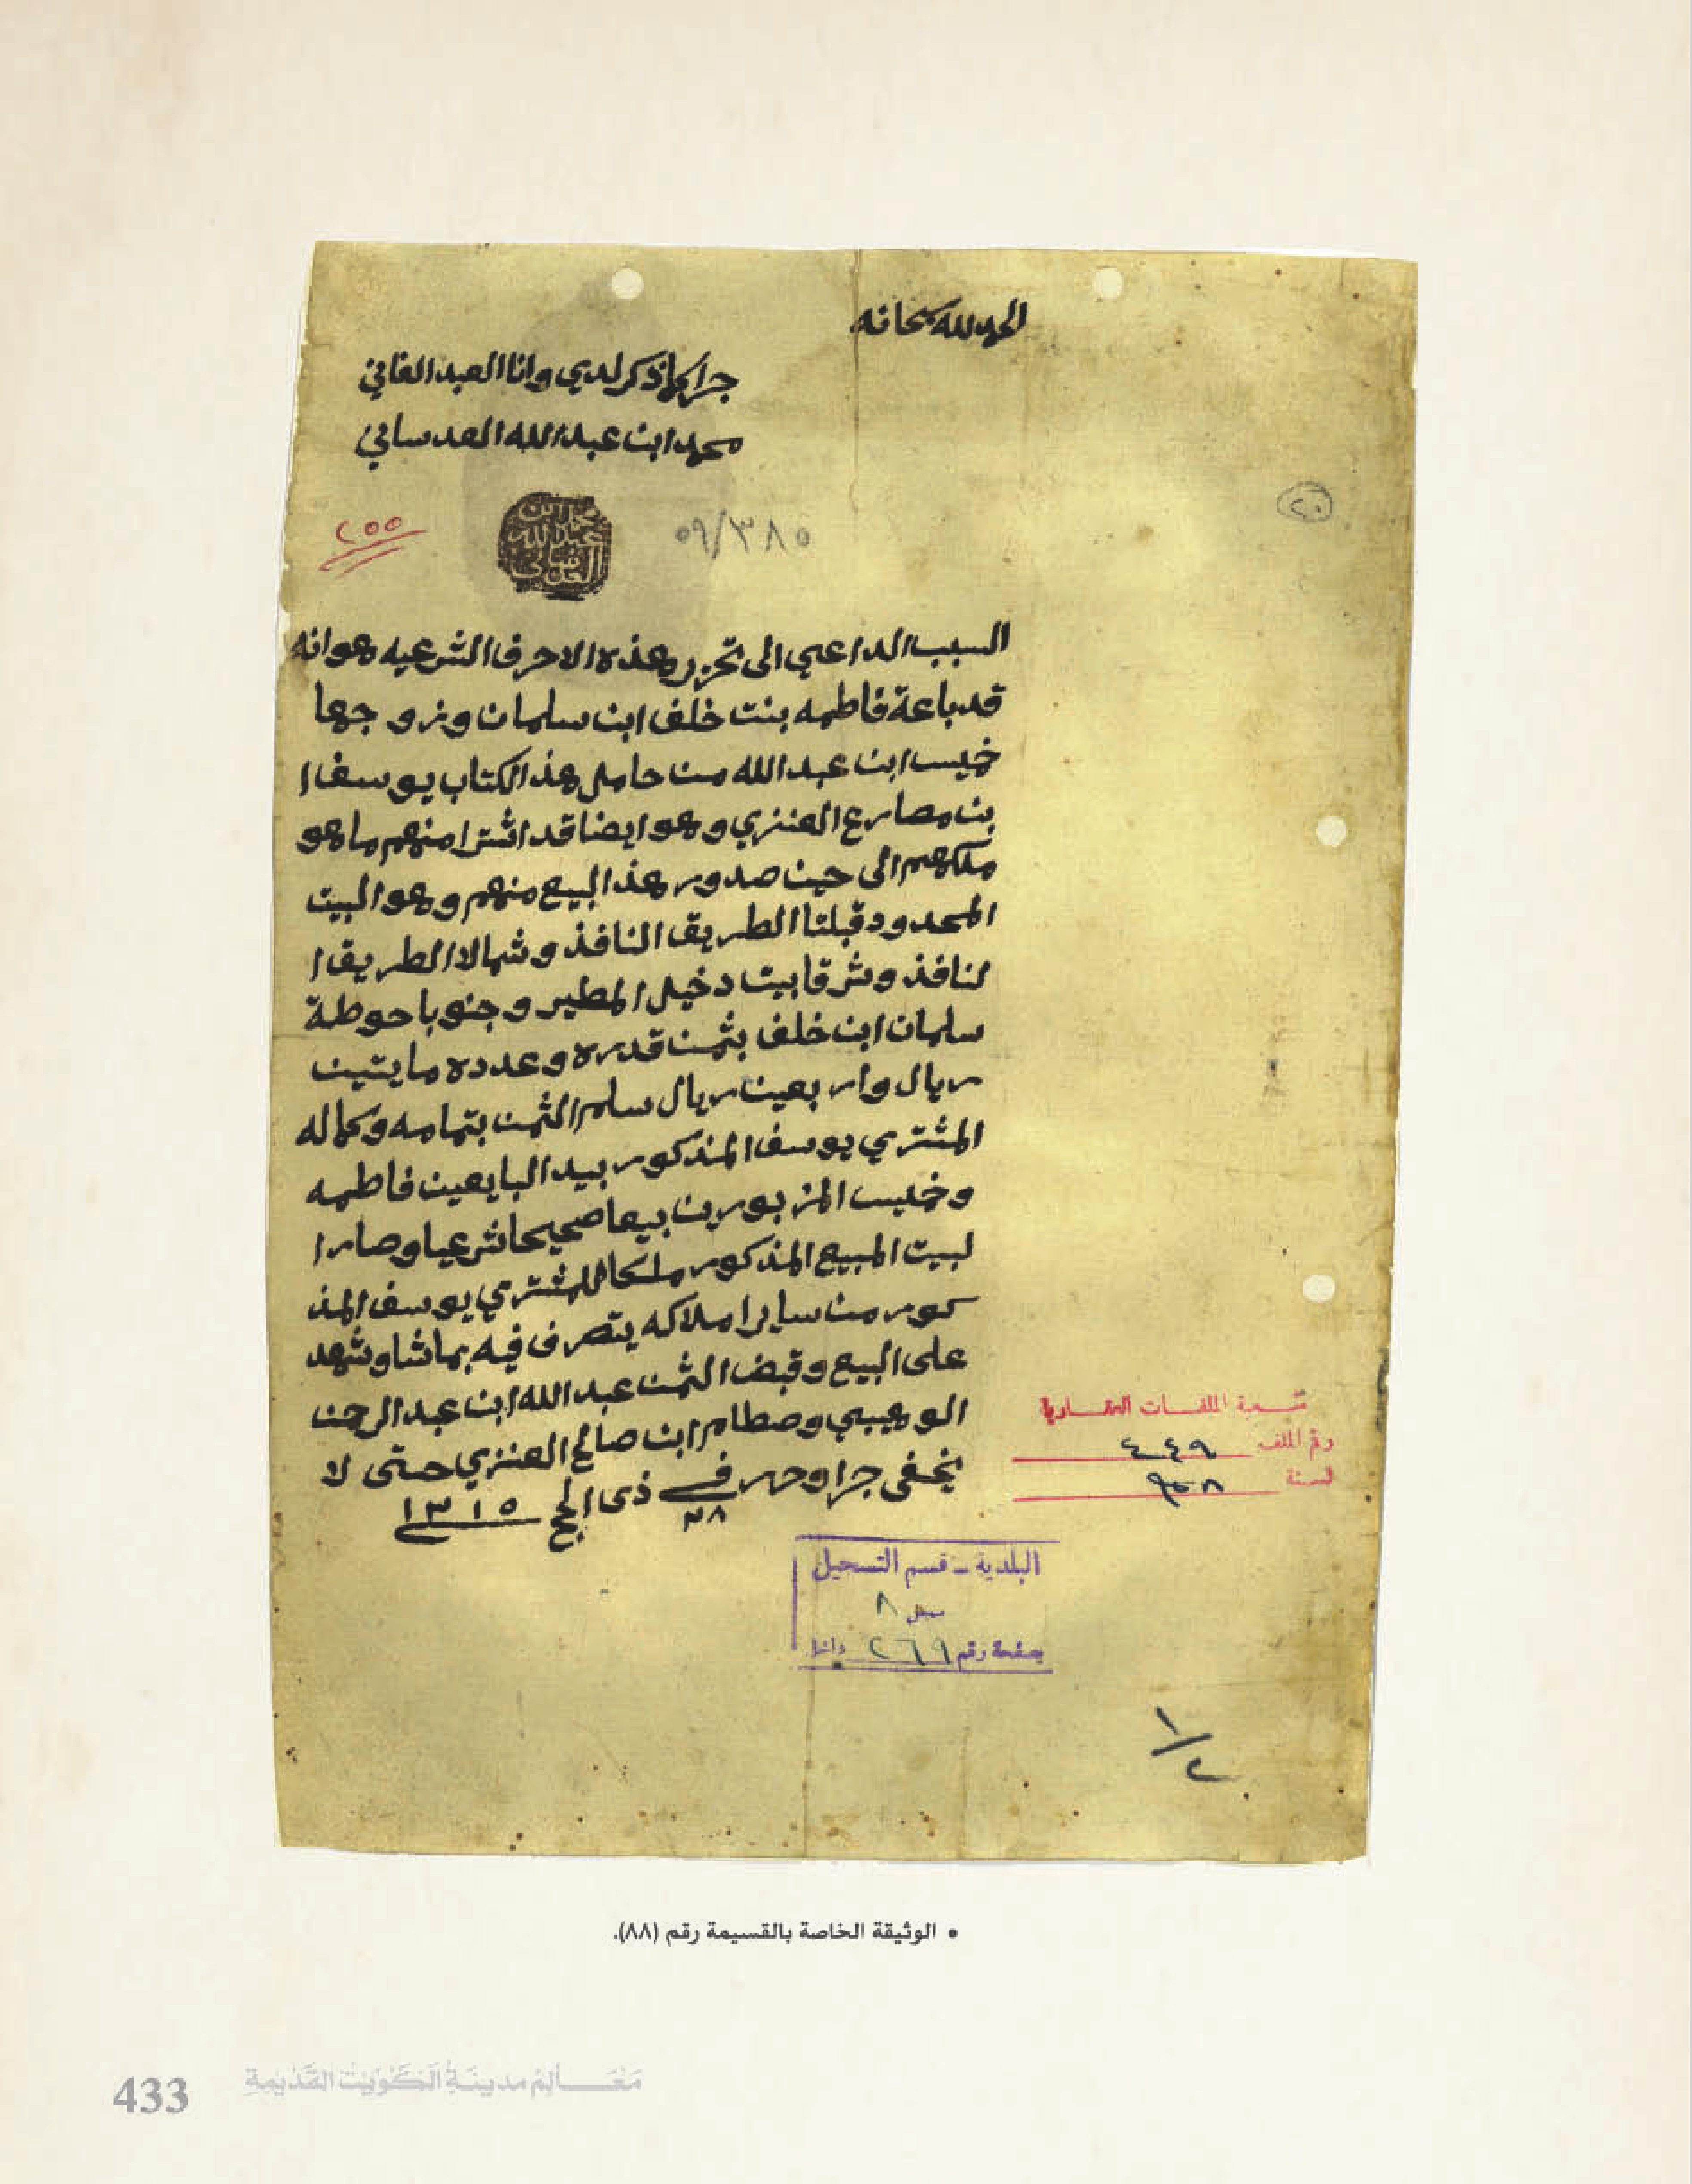 الحمد لله سبحانه
جرا كما ذكر لدي وانا العبد الفاني
محمد ابن عبد الله العدساني
٢٥٥
٥٩/٣٨٥
٢٠
السبب الداعي الى تحرير هذه الاحرف الشرعيه هو انه
قد باعة فاطمه بنت خلف ابن سلمان وزوجها
خميس ابن عبد الله من حامل هذ الكتاب يوسف ا
بن مصارع العنزي وهو ايضا قد اشترا منهم ما هو
ملكهم الى حين صدور هذ البيع منهم وهو البيت
المحدود قبلتا الطريق النافذ وشمالا الطريق ا
لنافذ وشرقا بيت دخيل المطير وجنوبا حوطة
سلمان ابن خلف بثمن قدره وعدده مايتين
ريال واربعين ريال سلم الثمن بتمامه وكماله
المشتري يوسف المذكور بيد البايعين فاطمه
وخميس المزبورين بيعا صحيحا شرعيا وصار ا
لبيت المبيع المذكور ملكا للمشتري يوسف المذ
كور من ساير املاكه يتصرف فيه بما شا وشهد
على البيع وقبض الثمن عبد الله ابن عبد الرحمن
الوهيبي وصطام ابن صالح العنزي حتى لا
يخفى جرا وحرر في ٢٨ ذى الحج ١٣١٥
شعبة الملفات العقارية
رقم الملف ٤٤٩
لسنة
البلدية - قسم التسجيل
سجل ٨
صفحة رقم ٢٦٩
١/٢
• الوثيقة الخاصة بالقسيمة رقم (٨٨).
433 مَعَالِمُ مدينَةِ الكُوَيْتِ القَدِيمَةِ